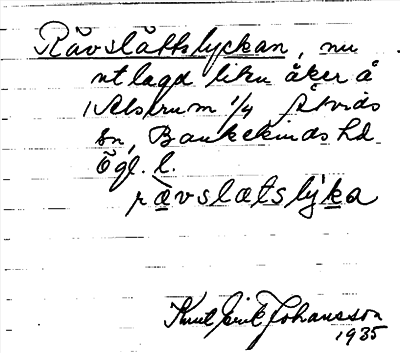 Rävslättslyckan, nu
utlagd liten åker å
Alstrum 1/4 Åtvids
sn, Bankekinds hd
Ögl. l.
rævslætslyka
Knut Erik Johansson
1935